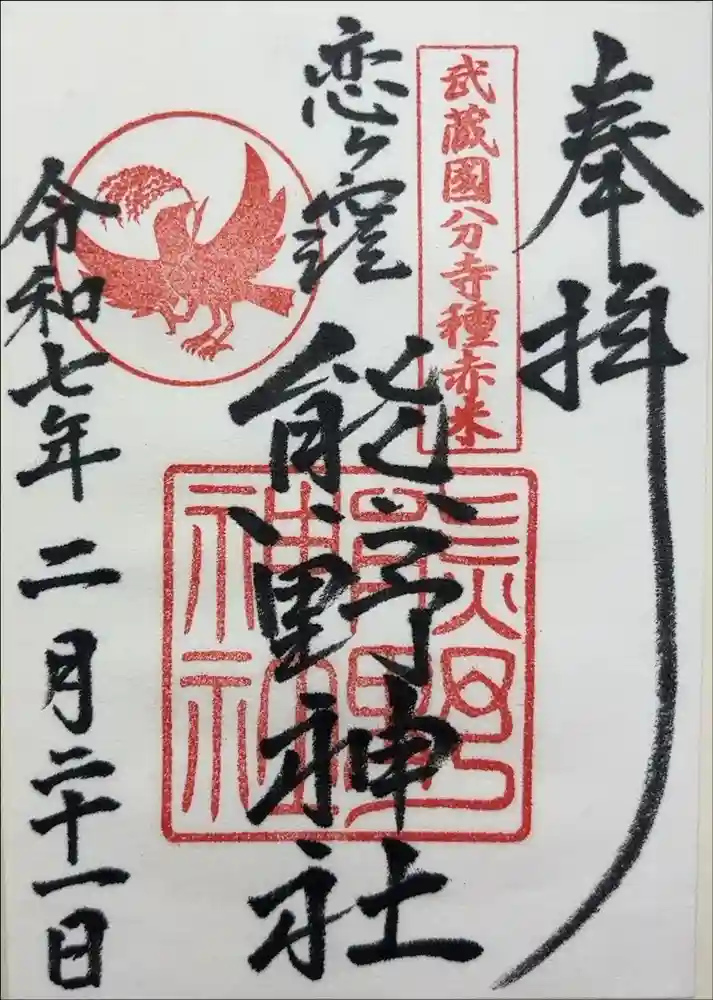 奉拝
武蔵國分寺種赤米
恋ヶ窪
熊野神社
熊野
神社
令和七年二月二十一日